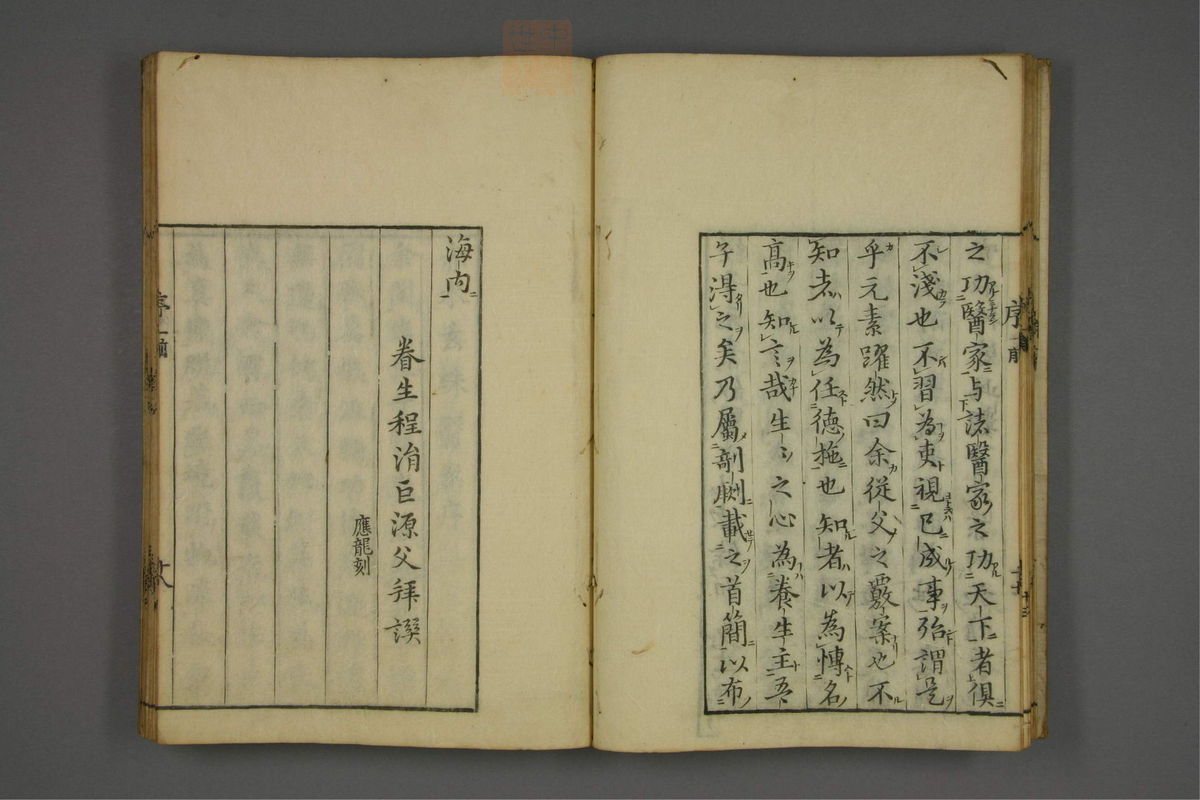 之功醫家与諸醫家之功天下者俱
不淺也不習為吏視已成事殆謂是
乎元素躍然曰余從父之覈案也不
知者以為任德施也知者以為慱名
高也知言哉生〻之心為養生主吾
子淂之矣乃屬剞劂載之首簡以布
海内
眷生程涓巨源父拜譔
應龍刻